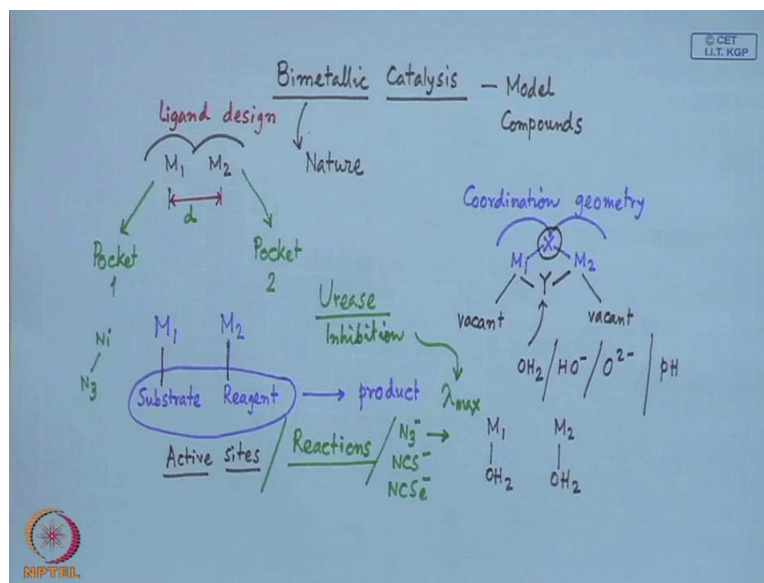 © CET
I.I.T. KGP
Bimetallic Catalysis — Model
Compounds
Ligand design
M1 M2
Nature
d
Pocket
1
Pocket
2
Coordination geometry
X
M1 M2
Y
vacant vacant
OH2/HO⁻/O²⁻/pH
Urease
Inhibition
λmax
Ni
N3
M1 M2
Substrate Reagent → product
Active sites / Reactions /
N3⁻ →
NCS⁻
NCSe⁻
M1 M2
OH2 OH2
NPTEL